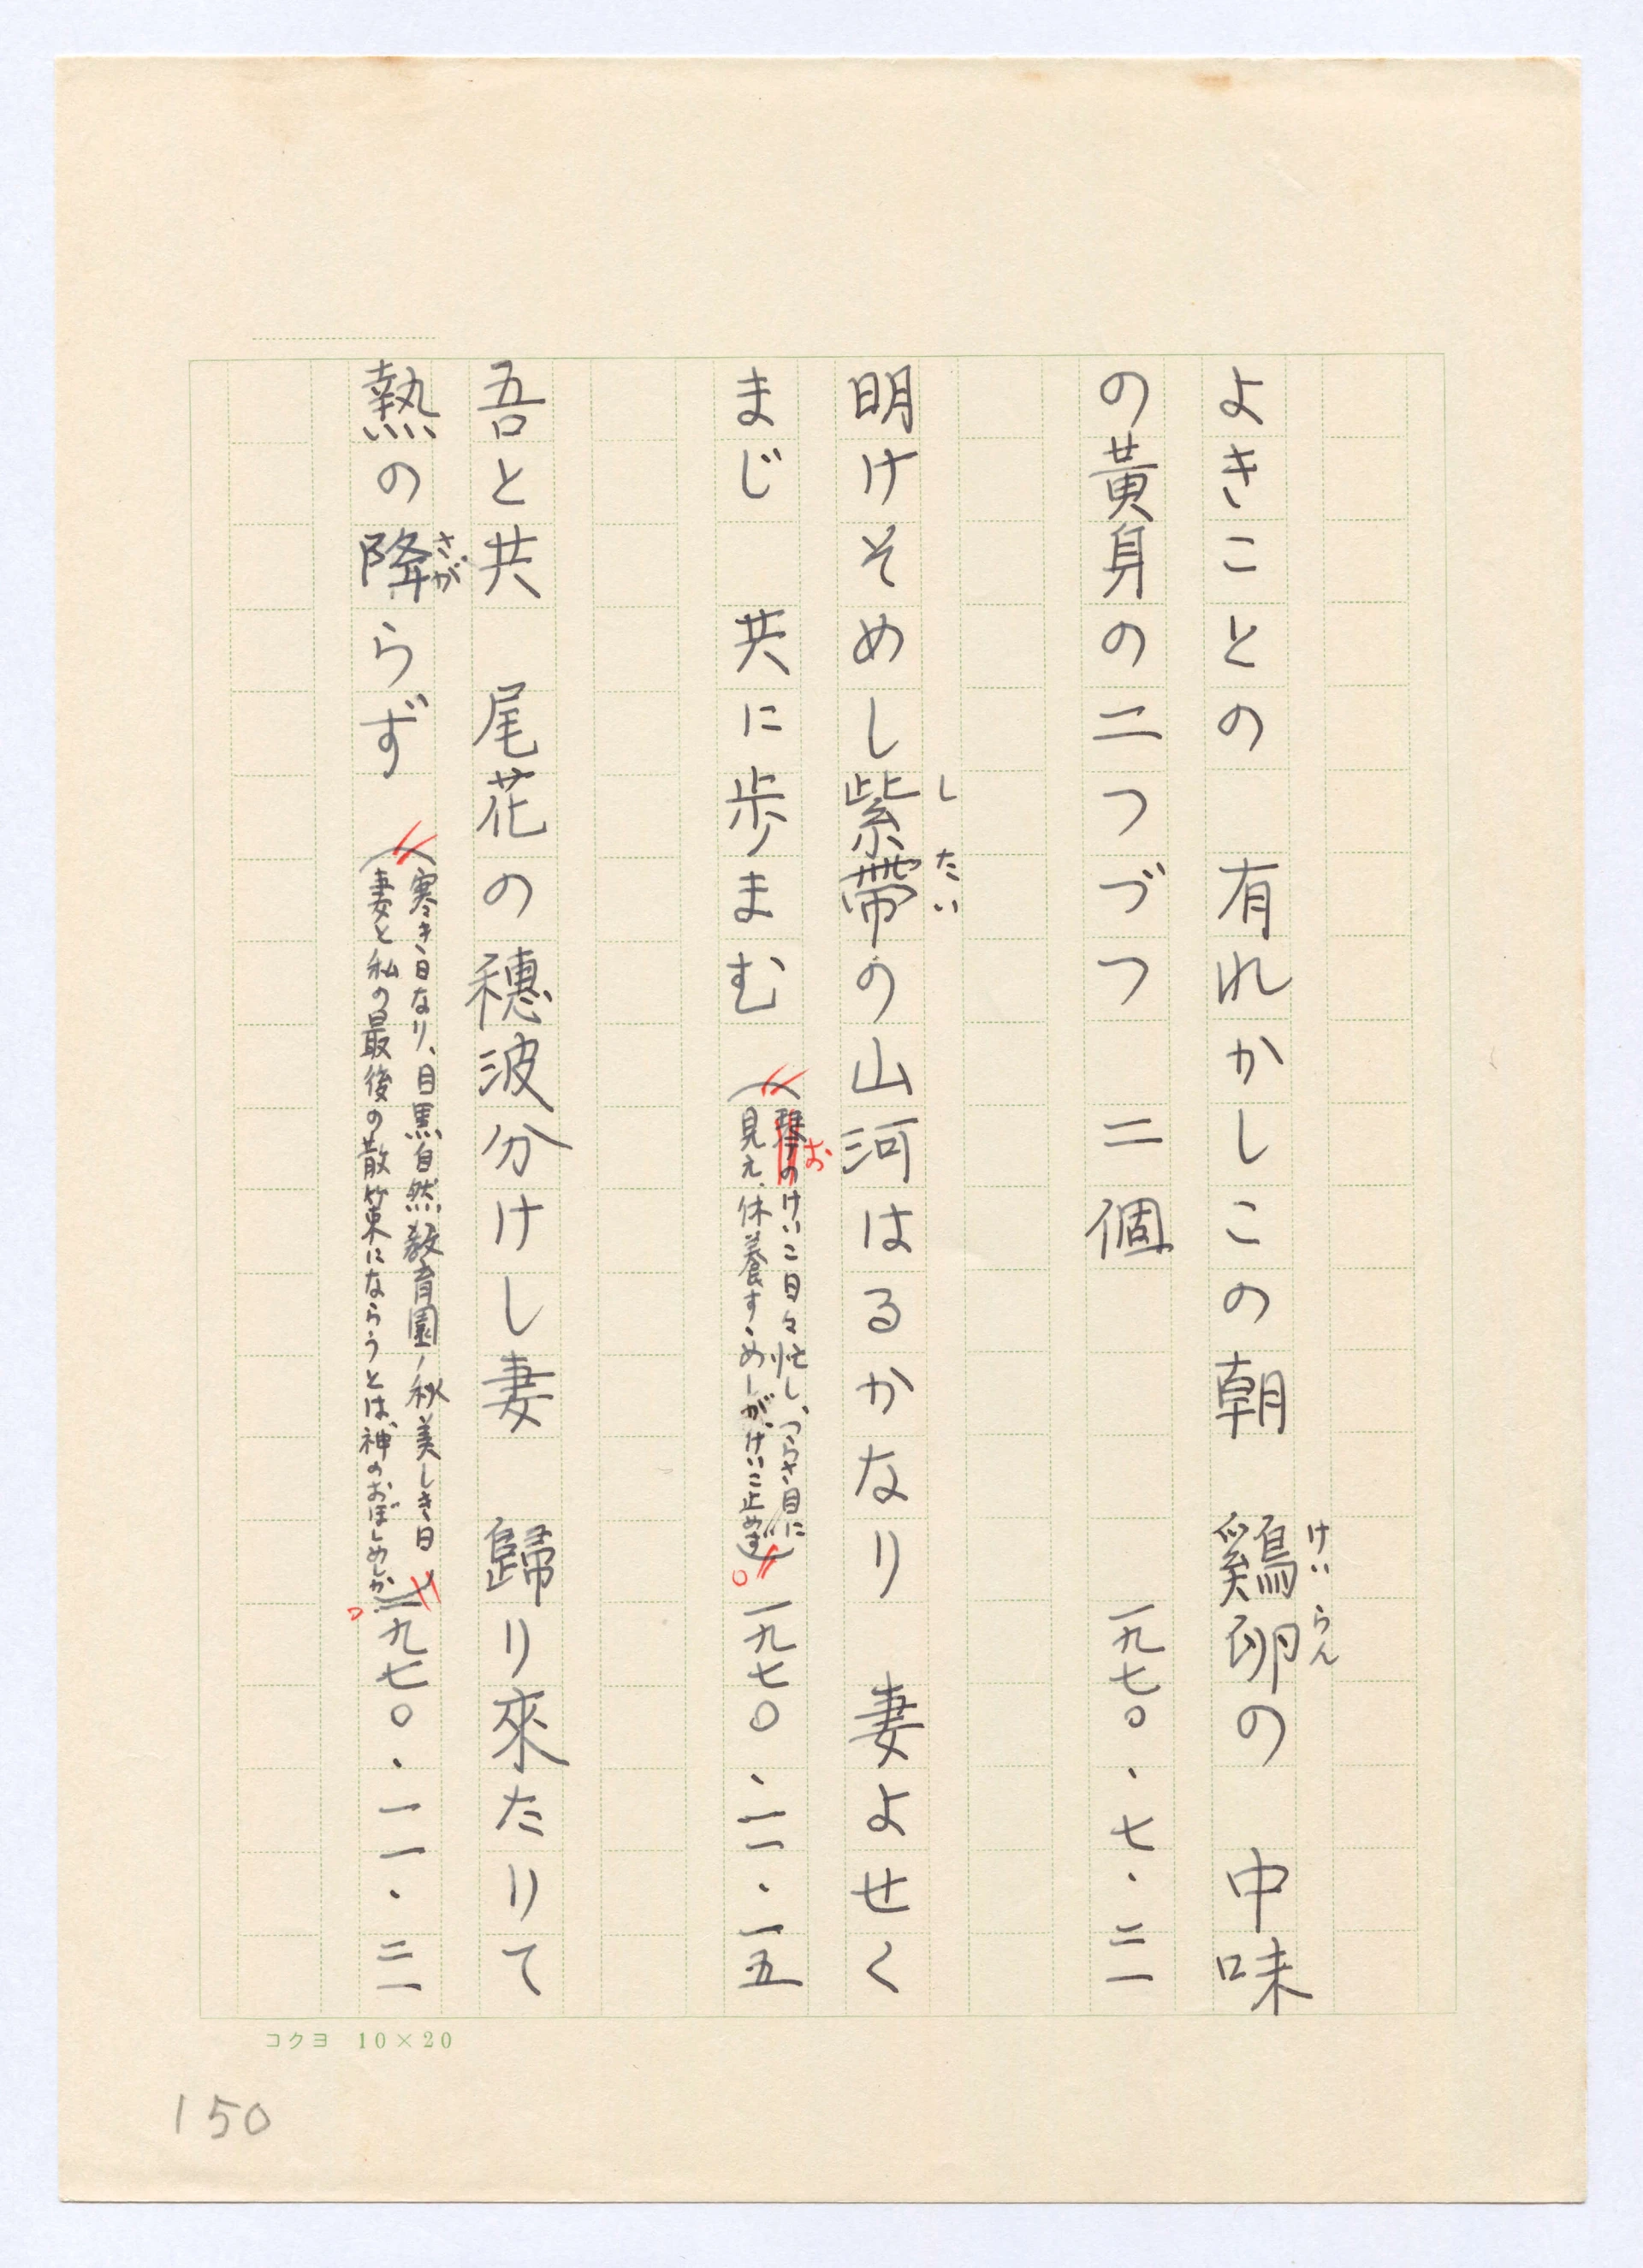 よきことの　有れかしこの朝　鷄卵の　中味
けいらん
の黃身の二つづつ　二個　一九七〇・七・二一
明けそめし紫帶の山河はるかなり　妻よせく
したい
まじ　共に歩まむ
(琴のけいこ日々忙し、つらさ目に
お
見え、休養すゝめしが、けいこ止めず)。
一九七〇・一一・一五
吾と共　尾花の穗波分けし妻　歸り來たりて
熱の降らず
さが
(寒き日なり、目黒自然敎育園ノ秋美しき日、
妻と私の最後の散策にならうとは、神のおぼしめしか)。
一九七〇・一一・二一
コクヨ 10×20
150